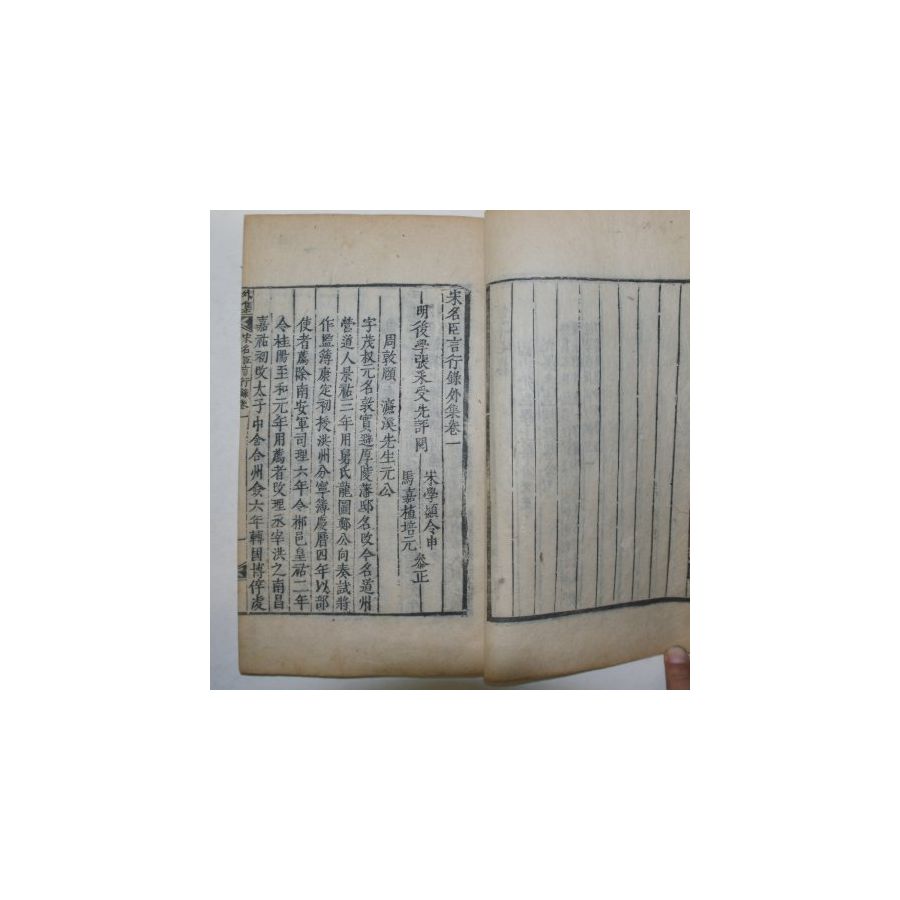 宋名臣言行錄外集卷一
明後學張采受先評閱
宋學顯令申
馬嘉植培元
叅正
周敦頤 濂溪先生元公
字茂叔元名敦實避厚陵藩邸名改今名道州
營道人景祐三年用舅氏龍圖鄭公向奏試將
作監簿康定初授洪州分寧簿慶曆四年以部
使者薦除南安軍司理六年令郴邑皇祐二年
令桂陽至和元年用薦者改理丞宰洪之南昌
嘉祐初改太子中舍合州僉六年轉國博倅虔
外集
宋名臣言行錄卷一